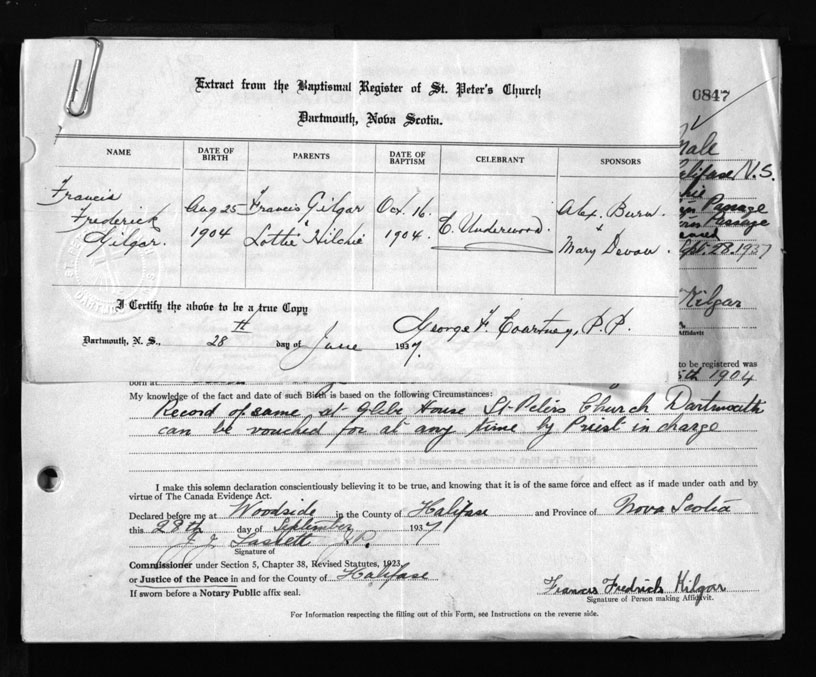 Extract from the Baptismal Register of St. Peter's Church
Dartmouth, Nova Scotia.
0847
NAME DATE OF BIRTH PARENTS DATE OF BAPTISM CELEBRANT SPONSORS
Francis Frederick Gilgar. Aug 25 1904 Francis Gilgar & Lottie Hilchie Oct. 16 1904. C. Underwood. Alex. Burn. & Mary Devan.
Male
Halifax N.S.
Passage
Passage
Sept. 28. 1937
Kilgar
Affidavit
to be registered was
5th 1904
I Certify the above to be a true Copy
Dartmouth, N. S., 28TH day of June 1937. George F. Courtney, P.P.
born at
My knowledge of the fact and date of such Birth is based on the following Circumstances:
Record of same at Glebe House St-Peters Church Dartmouth
can be vouched for at any time by Priest in charge
I make this solemn declaration conscientiously believing it to be true, and knowing that it is of the same force and effect as if made under oath and by
virtue of The Canada Evidence Act.
Declared before me at Woodside in the County of Halifax and Province of Nova Scotia
this 28th day of September 1937
J.P.
Signature of
Commissioner under Section 5, Chapter 38, Revised Statutes, 1923,
or Justice of the Peace in and for the County of Halifax
If sworn before a Notary Public affix seal.
Francis Fredrick Kilgar
Signature of Person making Affidavit.
For Information respecting the filling out of this Form, see Instructions on the reverse side.